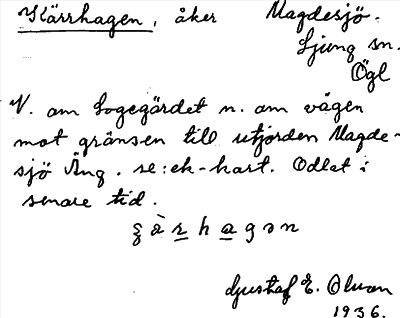 Kärrhagen, åker Magdesjö.
Ljung sn.
Ögl
V. om Logegärdet n. om vägen
mot gränsen till utjorden Magde-
sjö Äng. se: ek-kart. Odlat i
senare tid.
hagən
Gustaf E. Olson
1936.